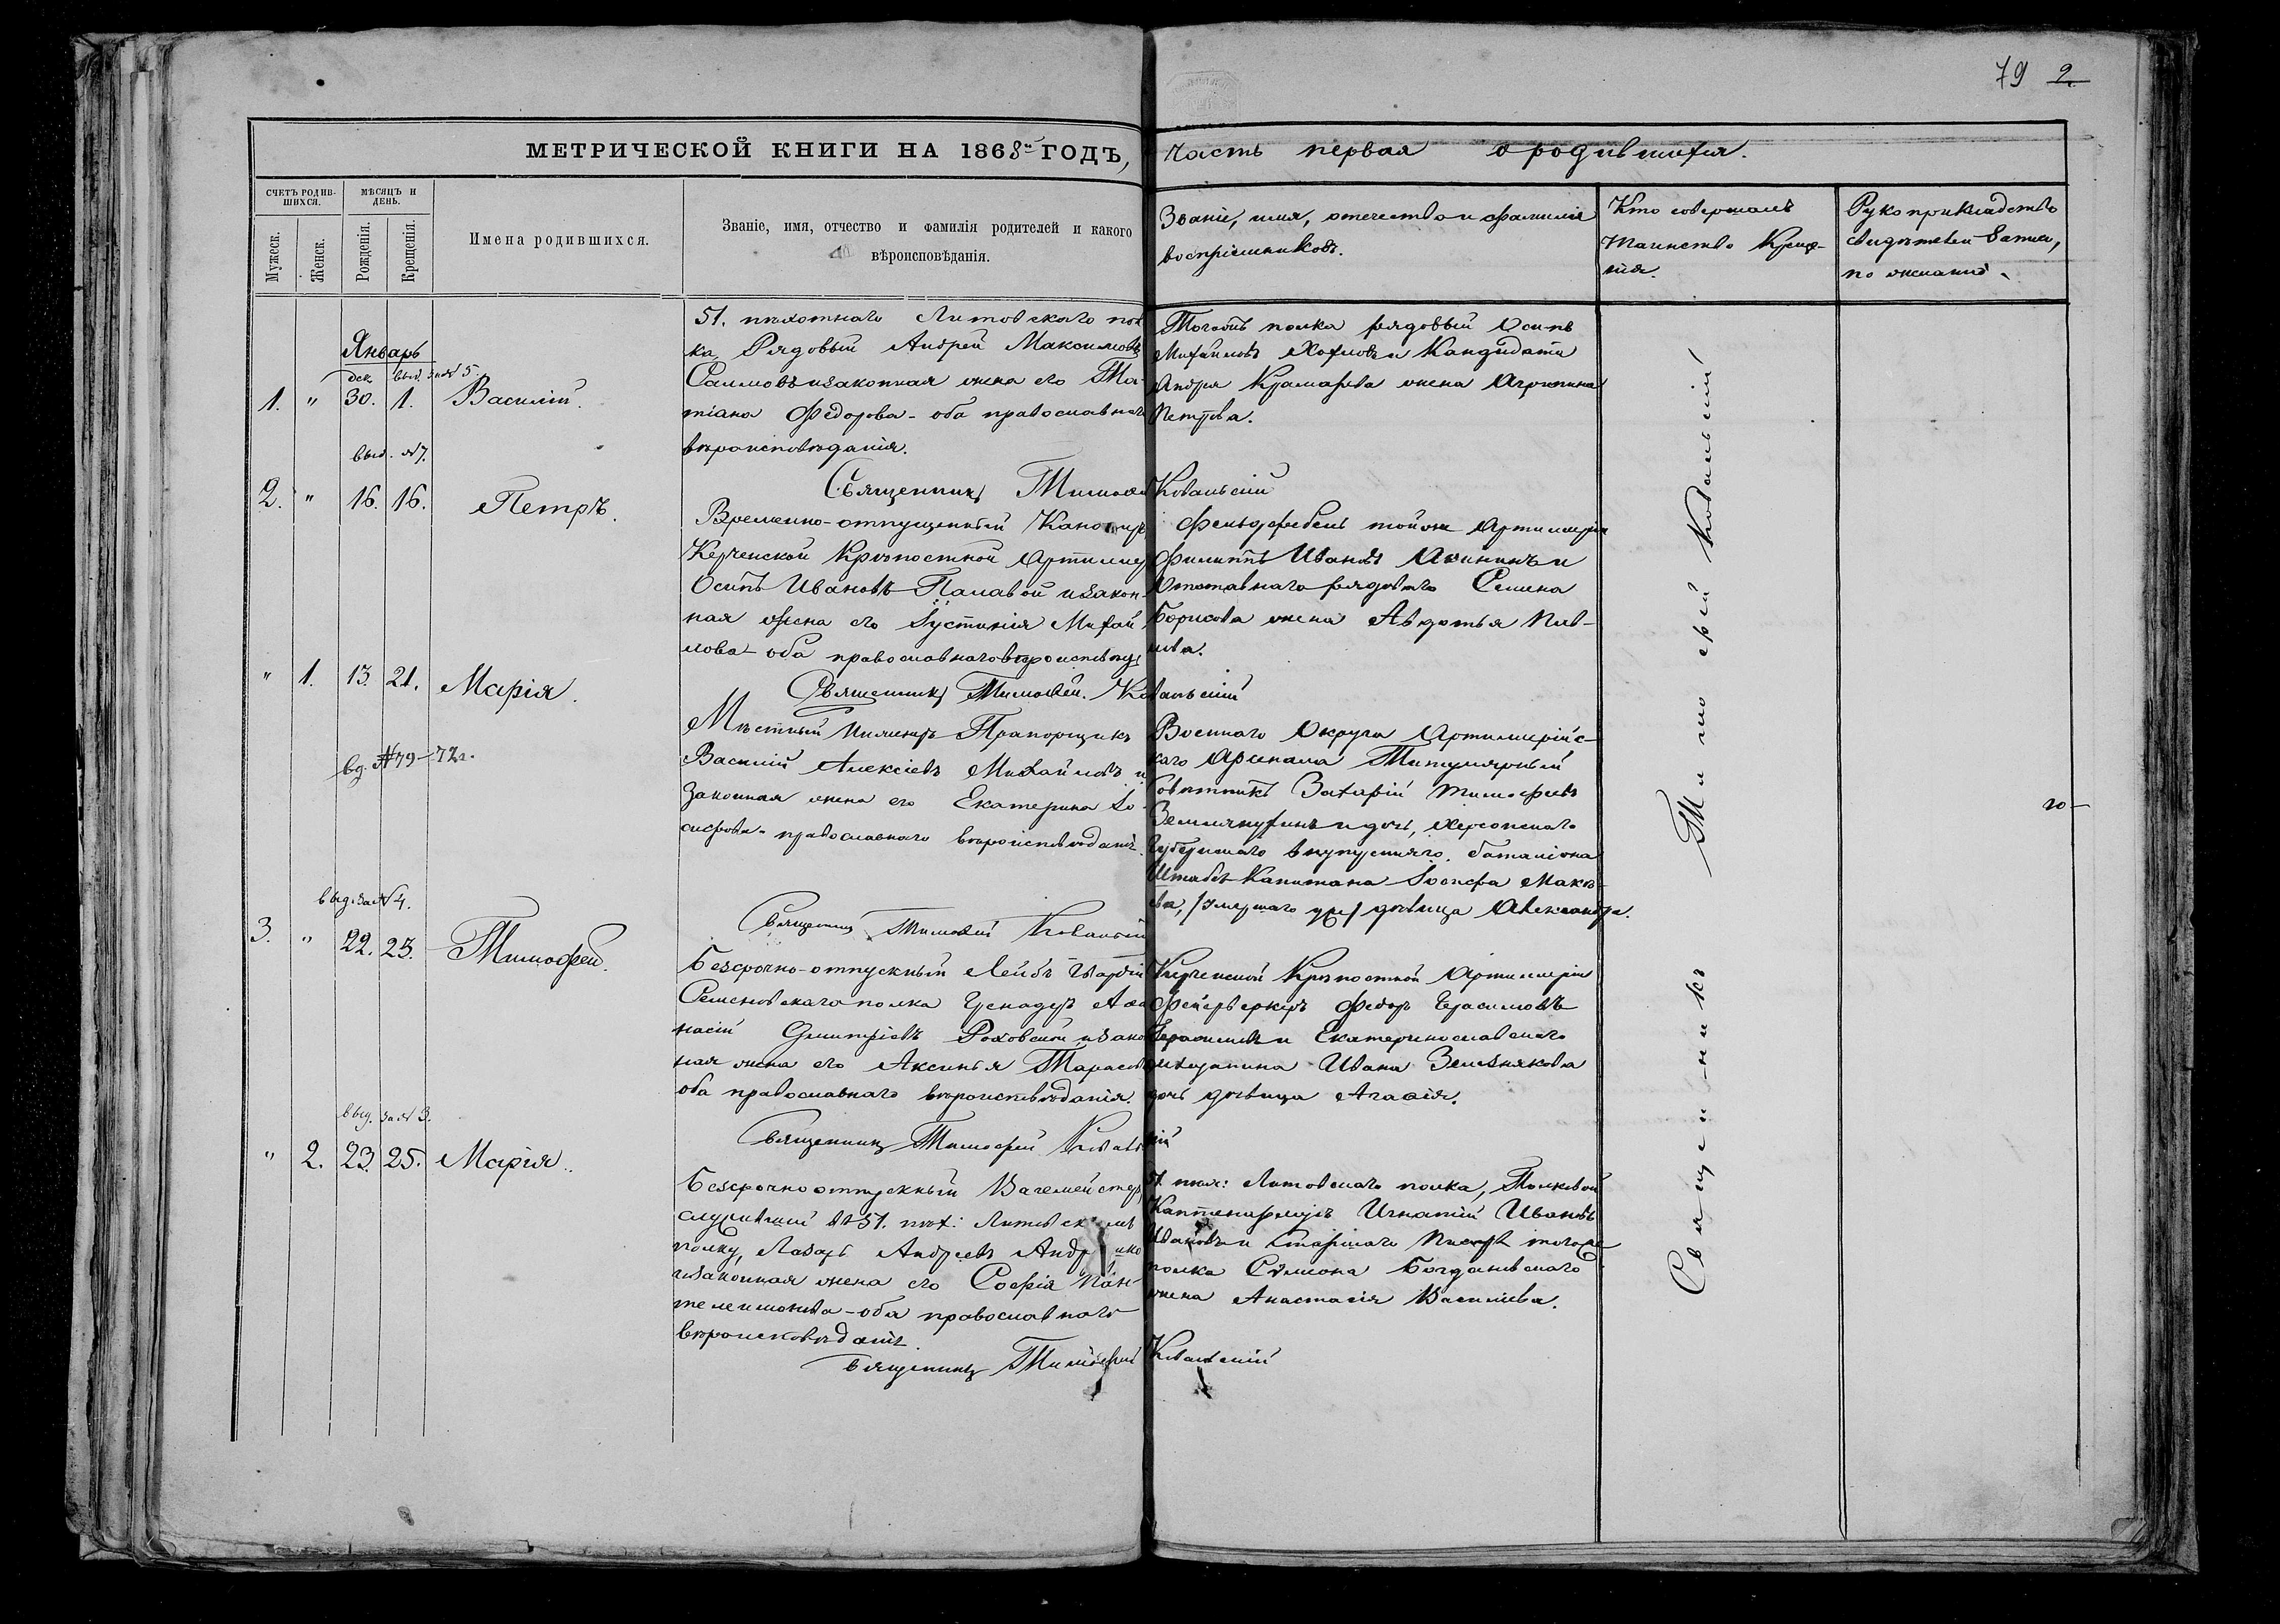 79 2
МЕТРИЧЕСКОЙ КНИГИ НА 1868й ГОДЪ,
часть первая о родившихся.
СЧЕТЪ РОДИВ-
ШИХСЯ.
МѢСЯЦЪ И
ДЕНЬ.
Мужеск.
Женск.
Рожденія.
Крещенія.
Имена родившихся.
Званіе, имя, отчество и фамилія родителей и какого
вѣроисповѣданія.
Званіе, имя, отчество и фамилія
воспріемниковъ.
Кто совершалъ
таинство Креще-
нія.
Рукоприкладство
свидѣтелей записи,
по желанію.
Январь
дек. выд. за № 5.
1. " 30. 1. Василій.
51. пѣхотнаго Литовскаго пол
ка Рядовый Андрей Максимовъ
и законная жена его Та-
тіана Федорова - оба православнаго
вѣроисповѣданія.
Тогожъ полка рядовый Осипъ
Михайловъ и Кандидата
Андрея Крамарева жена Агрипина
Петрова.
Священникъ Тимофей Ковальскій
выд. №7.
2. " 16. 16. Петръ.
Временно-отпущенный Канониръ
Керченской Крѣпостной Артиллер
Осипъ Ивановъ Палавой и закон-
ная жена его Іустинія Михай
лова - оба православнаго вѣроисповѣд
Фельдфебель тойже Артиллеріи
Филиппъ Ивановъ и
Отставнаго рядоваго Семена
Борисова жена Авдотья
Священникъ Тимофей Ковальскій
" 1. 13. 21. Марія.
вд. №79-72г.
Мѣстный Инженеръ Прапорщикъ
Василій Алексіевъ Михайловъ и
законная жена его Екатерина Іо-
сифова - православнаго вѣроисповѣданія.
Военнаго Округа Артиллерійс-
каго Арсенала Титулярный
Совѣтникъ Захарій Тимофеевъ
и дочь, Херсонскаго
Губернскаго баталіона
Штабсъ-Капитана Іосифа
дѣвица Александра.
Священникъ Тимофей Ковальскій
выд. за № 4.
3. " 22. 23. Тимофей.
Безсрочно-отпускный Лейбъ Гвардіи
Семеновскаго полка Гренадеръ Аѳа
насій Димитріевъ и закон
ная жена его Аксинья Тарасова
оба православнаго вѣроисповѣданія.
Керченской Крѣпостной Артиллеріи
Фейерверкеръ Федоръ Герасимовъ
Герасимовъ и Екатеринославскаго
мѣщанина Ивана Землякова
дочь дѣвица Агафія.
Священникъ Тимофей Ковальскій
выд. за № 3.
" 2. 23. 25. Марія.
Безсрочно отпускный Вахмейстеръ
служившій въ 51. пѣх: Литовскомъ
полку, Лазарь Андреевъ
и законная жена его Софія Пан-
телеимонова - оба православнаго
вѣроисповѣданія.
51. пѣх: Литовскаго полка, Полковой
Каптенармусъ Игнатій Ивановъ
Ивановъ и старшаго Писаря тогоже
полка Симеона Богдановскаго
жена Анастасія Василіева.
Священникъ Тимофей Ковальскій
Священникъ Тимофей Ковальскій